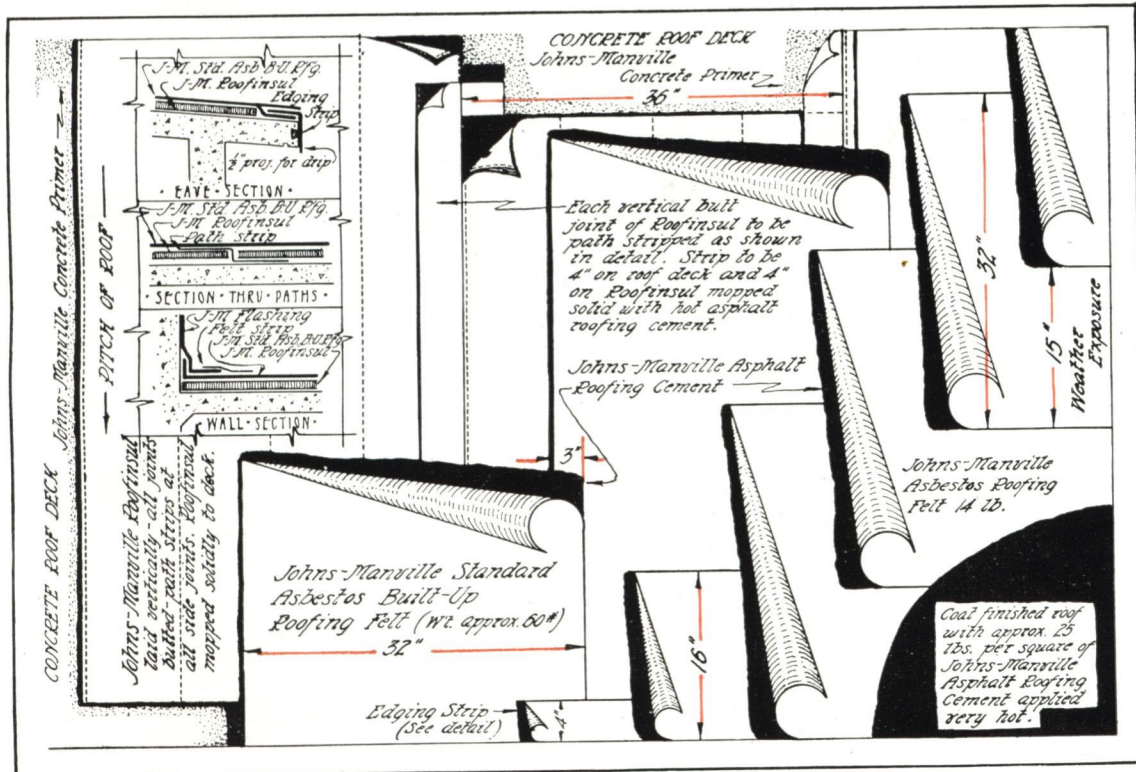 CONCRETE ROOF DECK
Johns-Manville Concrete Primer
PITCH OF ROOF
J-M. Std. Asb. B-U. Rfg.
J-M. Roofinsul
Edging
Strip
½" proj. for drip
· EAVE · SECTION ·
J-M. Std. Asb. B-U. Rfg.
J-M Roofinsul
Path strip
· SECTION · THRU · PATHS ·
J-M Flashing
Felt strip
J-M. Std. Asb. B-U. Rfg.
J-M. Roofinsul
WALL · SECTION ·
Johns-Manville Roofinsul
laid vertically-all joints
butted-path strips at
all side joints. Roofinsul
mopped solidly to deck.
CONCRETE ROOF DECK
Johns-Manville
Concrete Primer
36"
Each vertical butt
joint of Roofinsul to be
path stripped as shown
in detail. Strip to be
4" on roof deck and 4"
on Roofinsul mopped
solid with hot asphalt
roofing cement.
Johns-Manville Asphalt
Roofing Cement
3"
32"
15"
Weather
Exposure
Johns-Manville
Asbestos Roofing
Felt 14 lb.
Johns-Manville Standard
Asbestos Built-Up
Roofing Felt (Wt. approx. 60#)
32"
16"
Edging Strip
(See detail)
4"
Coat finished roof
with approx. 25
lbs. per square of
Johns-Manville
Asphalt Roofing
Cement applied
very hot.